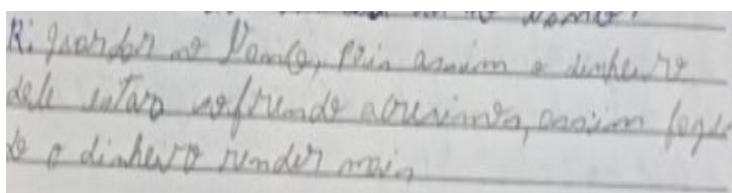 R: guardar no Banco, pois assim o dinheiro
dele estara sofrendo acresimos, assim fazen
do o dinheiro render mais